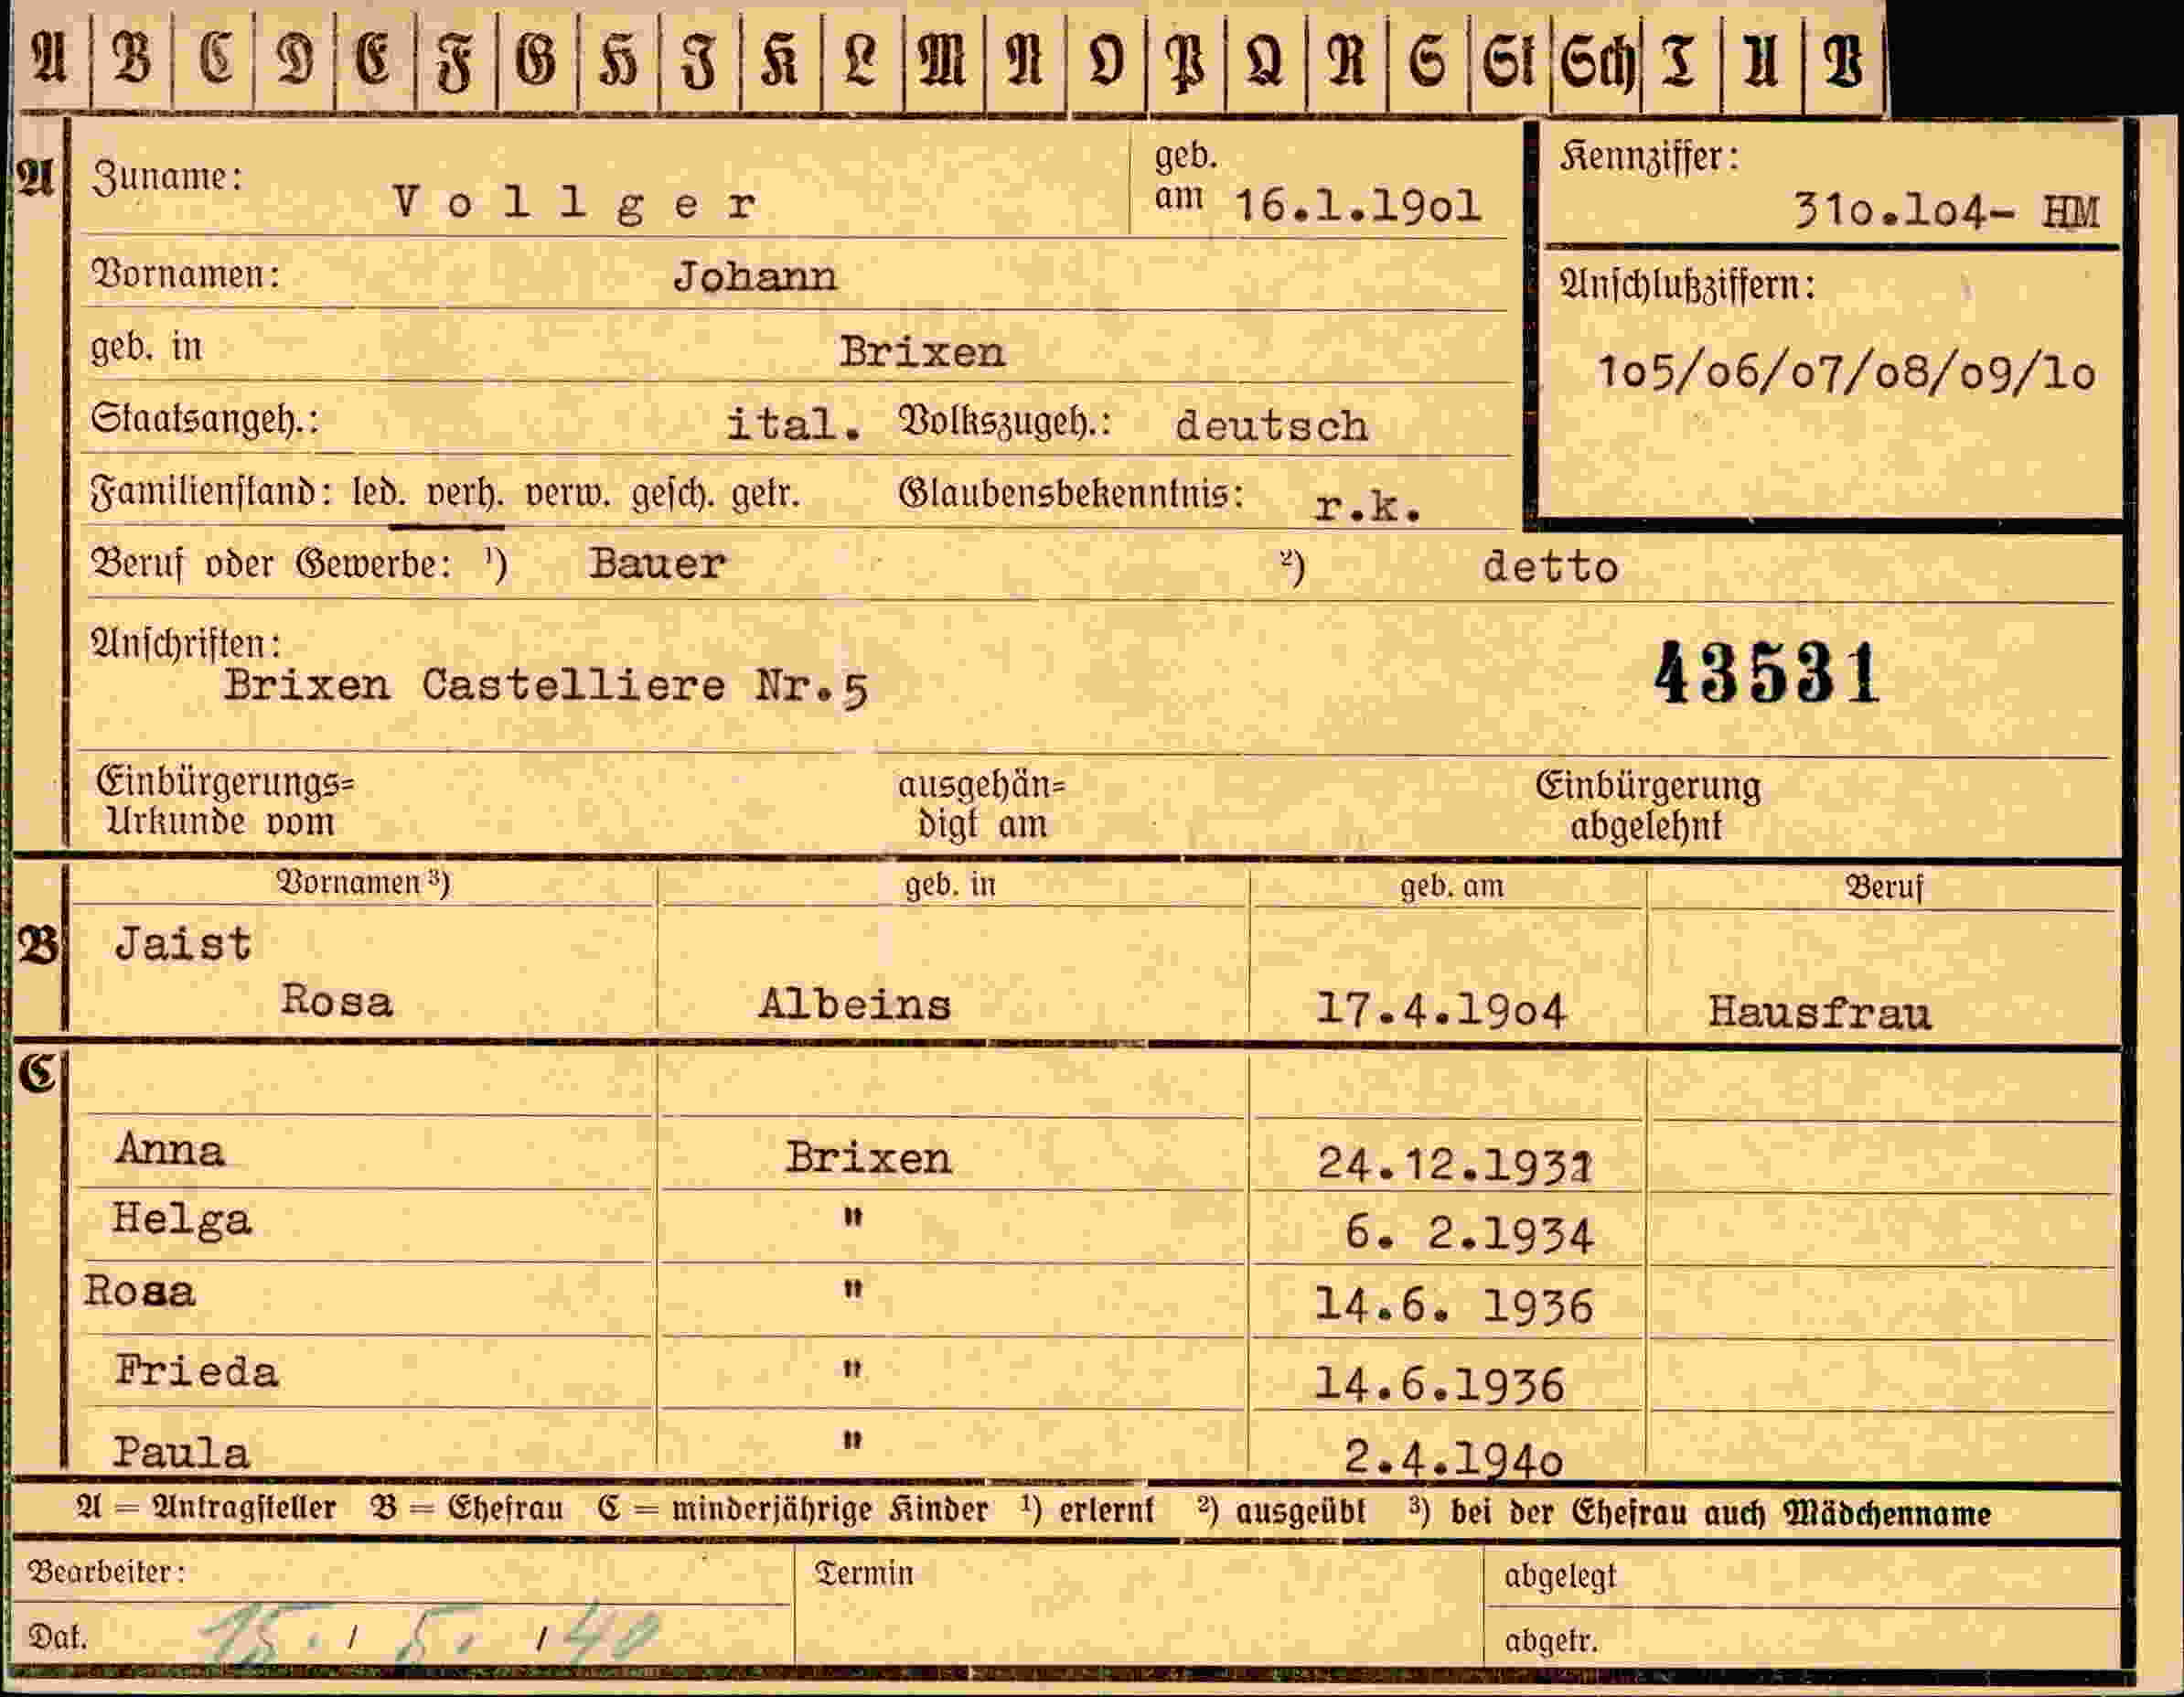 A B C D E F G H I K L M N O P Q R S St Sch T U V
A Zuname: Vollger geb. am 16.1.19o1 Kennziffer:
31o.1o4- HM
Vornamen: Johann Anschlußziffern:
geb. in Brixen 1o5/o6/o7/o8/o9/1o
Staatsangeh.: ital. Volkszugeh.: deutsch
Familienstand: led. verh. verw. gesch. getr. Glaubensbekenntnis: r.k.
Beruf oder Gewerbe: ¹) Bauer ²) detto
Anschriften:
Brixen Castelliere Nr.5 43531
Einbürgerungs= ausgehän= Einbürgerung
Urkunde vom digt am abgelehnt
Vornamen ³) geb. in geb. am Beruf
B Jaist
Rosa Albeins 17.4.19o4 Hausfrau
C
Anna Brixen 24.12.1931
Helga " 6. 2.1934
Rosa " 14.6. 1936
Frieda " 14.6.1936
Paula " 2.4.194o
A = Antragsteller B = Ehefrau C = minderjährige Kinder ¹) erlernt ²) ausgeübt ³) bei der Ehefrau auch Mädchenname
Bearbeiter: Termin abgelegt
Dat. 15. / 5. / 40 abgetr.